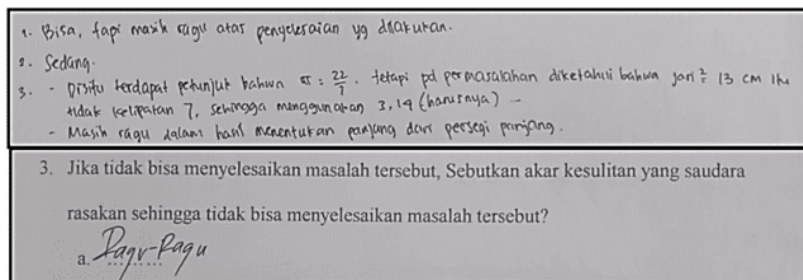 1. Bisa, tapi masih ragu atas penyelesaian yg dilakukan.
2. Sedang.
3. - Disitu terdapat petunjuk bahwa π = 22/7. tetapi pd permasalahan diketahui bahwa jari² = 13 cm itu
tidak kelipatan 7, sehingga menggunakan 3,14 (harusnya) -
- Masih ragu dalam hasil menentukan panjang dari persegi panjang.
3. Jika tidak bisa menyelesaikan masalah tersebut, Sebutkan akar kesulitan yang saudara
rasakan sehingga tidak bisa menyelesaikan masalah tersebut?
a. Ragu-Ragu